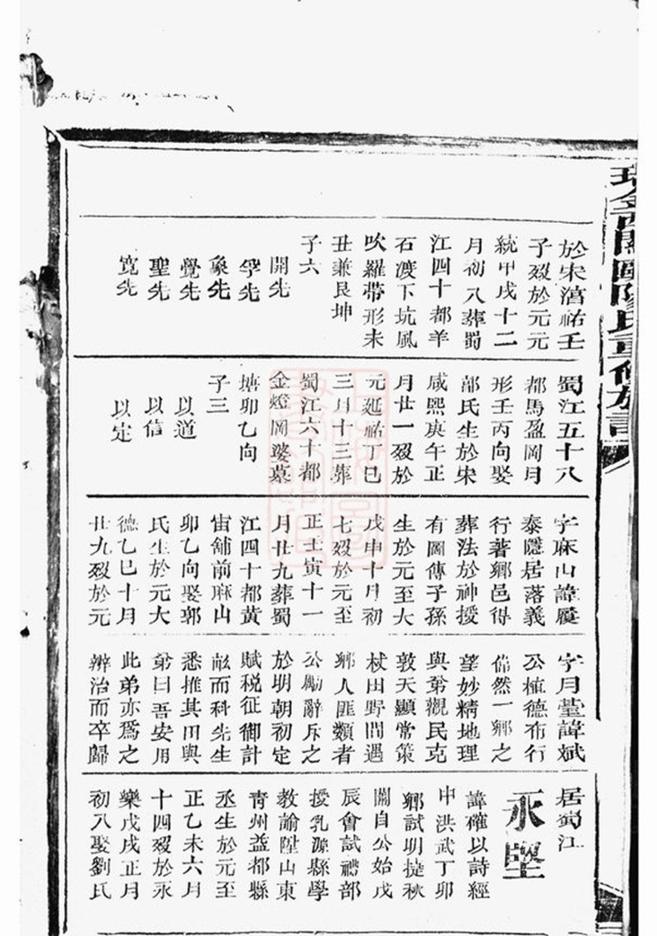 於宋淳祐壬
子歿於元元
統甲戌十二
月初八葬蜀
江四十都羊
石渡下坑風
吹羅帶形未
丑兼艮坤
子六
開先
學先
象先
覺先
聖先
寬先
蜀江五十八
都馬盈岡月
形壬丙向娶
郎氏生於宋
咸熙庚午正
月廿一歿於
元延祐丁巳
三月十三葬
蜀江六十都
金燈岡婆墓
塘卯乙向
子三
以道
以信
以定
字麻山諱履
泰隱居落義
行著鄉邑得
葬法於神授
有圖傳子孫
生於元至大
戊申十月初
七歿於元至
正壬寅十一
月廿九葬蜀
江四十都黃
宙舖前麻山
卯乙向娶郭
氏生於元大
德乙巳十月
廿九歿於元
字月堂諱斌
公植德布行
偹然一鄉之
望妙精地理
與弟觀民克
敦天顯常策
杖田野間遇
鄉人匪類者
公勵辭斥之
於明朝初定
賦稅征御計
畝而科先生
悉推其田與
弟曰吾安用
此弟亦爲之
辨治而卒歸
居蜀江
永堅
諱確以詩經
中洪武丁卯
鄉試明㨗秋
闈自公始戊
辰會試禮部
授乳源縣學
教諭陞山東
青州益都縣
丞生於元至
正乙未六月
十四歿於永
樂戊戌正月
初八娶劉氏